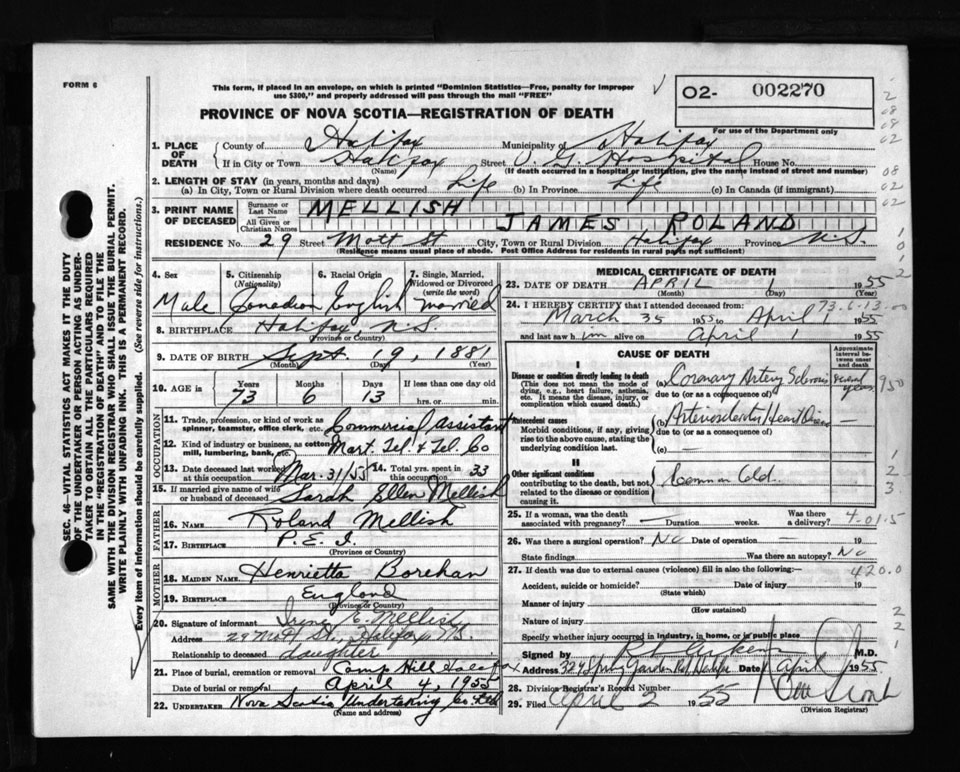 FORM 6
This form, if placed in an envelope, on which is printed "Dominion Statistics—Free, penalty for improper
use $300," and properly addressed will pass through the mail "FREE"
02- 002270
For use of the Department only
PROVINCE OF NOVA SCOTIA—REGISTRATION OF DEATH
1. PLACE OF DEATH
County of Halifax Municipality of Halifax
If in City or Town Halifax Street V. G. Hospital House No.
(Name) (If death occurred in a hospital or institution, give the name instead of street and number)
2. LENGTH OF STAY (in years, months and days)
(a) In City, Town or Rural Division where death occurred Life (b) In Province Life (c) In Canada (if immigrant)
3. PRINT NAME OF DECEASED
Surname or Last Name MELLISH
All Given or Christian Names JAMES ROLAND
RESIDENCE No. 29 Street Mott St City, Town or Rural Division Halifax Province N.S.
(Residence means usual place of abode. Post Office Address for residents in rural parts not sufficient)
4. Sex 5. Citizenship (Nationality) 6. Racial Origin 7. Single, Married, Widowed or Divorced (write the word)
Male Canadian English married
8. BIRTHPLACE Halifax, N.S.
(Province or Country)
9. DATE OF BIRTH Sept. 19, 1881
(Month) (Day) (Year)
10. AGE in Years Months Days If less than one day old
73 6 13 hrs. or min.
11. Trade, profession, or kind of work as spinner, teamster, office clerk, etc. Commercial Assistant
12. Kind of industry or business, as cotton mill, lumbering, bank, etc. Mart. Tel. & Tel. Co
13. Date deceased last worked at this occupation Mar. 31/55 14. Total yrs. spent in 33
15. If married give name of wife or husband of deceased Sarah Ellen Mellish
FATHER
16. NAME Roland Mellish
17. BIRTHPLACE P.E.I.
(Province or Country)
MOTHER
18. MAIDEN NAME Henrietta Borehan
19. BIRTHPLACE England
(Province or Country)
20. Signature of informant Irene E. Mellish
Address 29 Mott St., Halifax, N.S.
Relationship to deceased daughter
21. Place of burial, cremation or removal Camp Hill Halifax
Date of burial or removal April 4, 1955
22. UNDERTAKER Nova Scotia Undertaking Co. Ltd
(Name and address)
MEDICAL CERTIFICATE OF DEATH
23. DATE OF DEATH APRIL 1 1955
(Month) (Day) (Year)
24. I HEREBY CERTIFY that I attended deceased from:
73.6.13
March 1955 to April 1 1955
and last saw him alive on April 1 1955
CAUSE OF DEATH
Approximate interval between onset and death
I
Disease or condition directly leading to death
(This does not mean the mode of dying, e.g., heart failure, asthenia, etc. It means the disease, injury, or complication which caused death.)
(a) Coronary Artery Sclerosis several years
due to (or as a consequence of)
Antecedent causes
Morbid conditions, if any, giving rise to the above cause, stating the underlying condition last.
(b) Arteriosclerotic Heart Disease
due to (or as a consequence of)
(c) —
II
Other significant conditions contributing to the death, but not related to the disease or condition causing it.
Common Cold.
25. If a woman, was the death associated with pregnancy? — Duration weeks. Was there a delivery?
4-01.5
26. Was there a surgical operation? No Date of operation — 19
State findings Was there an autopsy? No
27. If death was due to external causes (violence) fill in also the following:—
420.0
Accident, suicide or homicide? Date of injury 19
(State which)
Manner of injury
(How sustained)
Nature of injury
Specify whether injury occurred in industry, in home, or in public place
Signed by M.D.
Address 324 Spring Garden Rd. Halifax Date April 1 1955
28. Division Registrar's Record Number
29. Filed April 2 1955
(Division Registrar)
SEC. 46—VITAL STATISTICS ACT MAKES IT THE DUTY
OF THE UNDERTAKER OR PERSON ACTING AS UNDER-
TAKER TO OBTAIN ALL THE PARTICULARS REQUIRED
IN THE "REGISTRATION OF DEATH" AND TO FILE THE
SAME WITH THE DIVISION REGISTRAR WHO SHALL ISSUE THE BURIAL PERMIT.
WRITE PLAINLY WITH UNFADING INK. THIS IS A PERMANENT RECORD.
Every item of information should be carefully supplied. (See reverse side for instructions.)